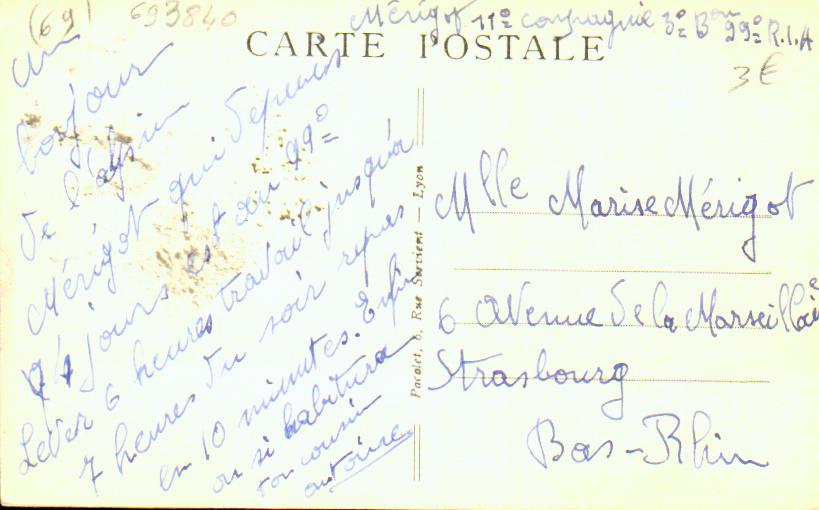 (69) 693840
Mérigot 11º compagnie 3º Bon 99º R.I.A
CARTE POSTALE
3€
Un
bonjour
de l'alpin
Mérigot qui depuis
4 jours est au 99º
Lever 6 heures travail jusqu'à
7 heures du soir repas
en 10 minutes. Enfin
on si habitura
ton cousin
antoine
Pacalet, 6, Rue Servient — Lyon
Mlle Marise Mérigot
6 Avenue de la Marseillaise
Strasbourg
Bas-Rhin